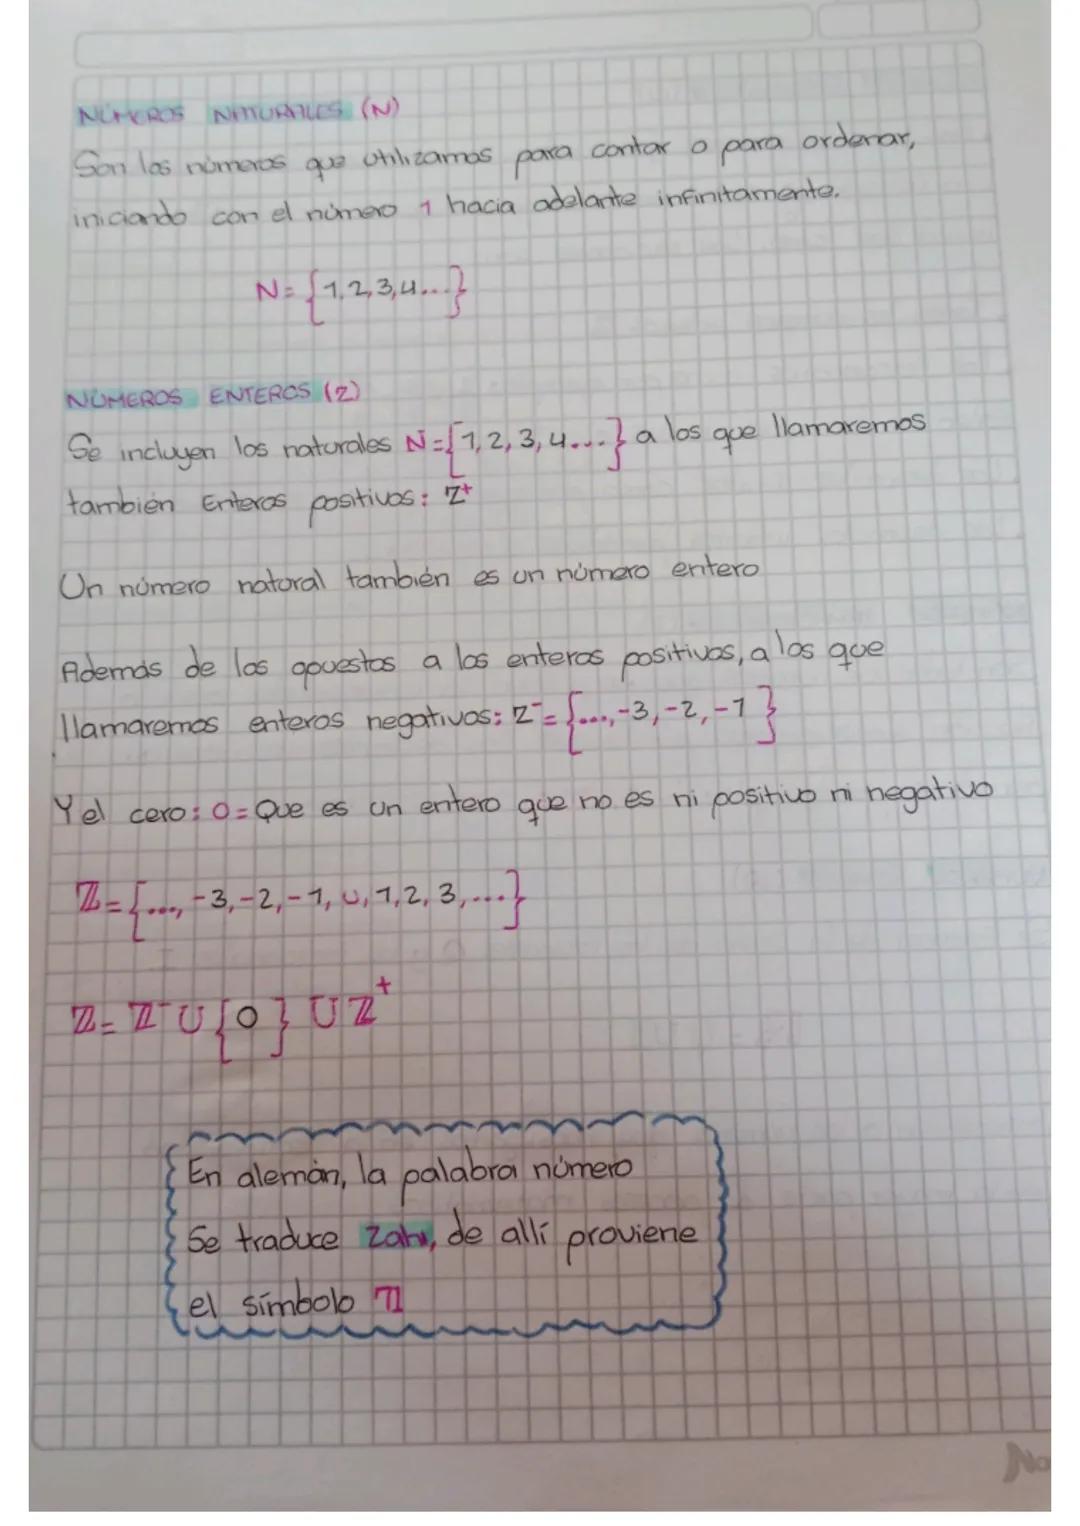 NÚMEROS NATURALES (N)
Son los números que utilizamos para contar o para ordenar,
iniciando con el número 1 hacia adelante infinitamente.
N={1,2,3,4...}
NÚMEROS ENTEROS (Z)
Se incluyen los naturales N={1,2,3,4...} a los que llamaremos
también Enteros positivos: Z⁺
Un número natural también es un número entero
Además de los opuestos a los enteros positivos, a los que
llamaremos enteros negativos: Z⁻={...,-3,-2,-1}
Y el cero: 0=Que es un entero que no es ni positivo ni negativo
ℤ={...,-3,-2,-1,0,1,2,3,...}
ℤ=ℤ⁻U{0}Uℤ⁺
En alemán, la palabra número
Se traduce Zahl, de allí proviene
el símbolo ℤ
No